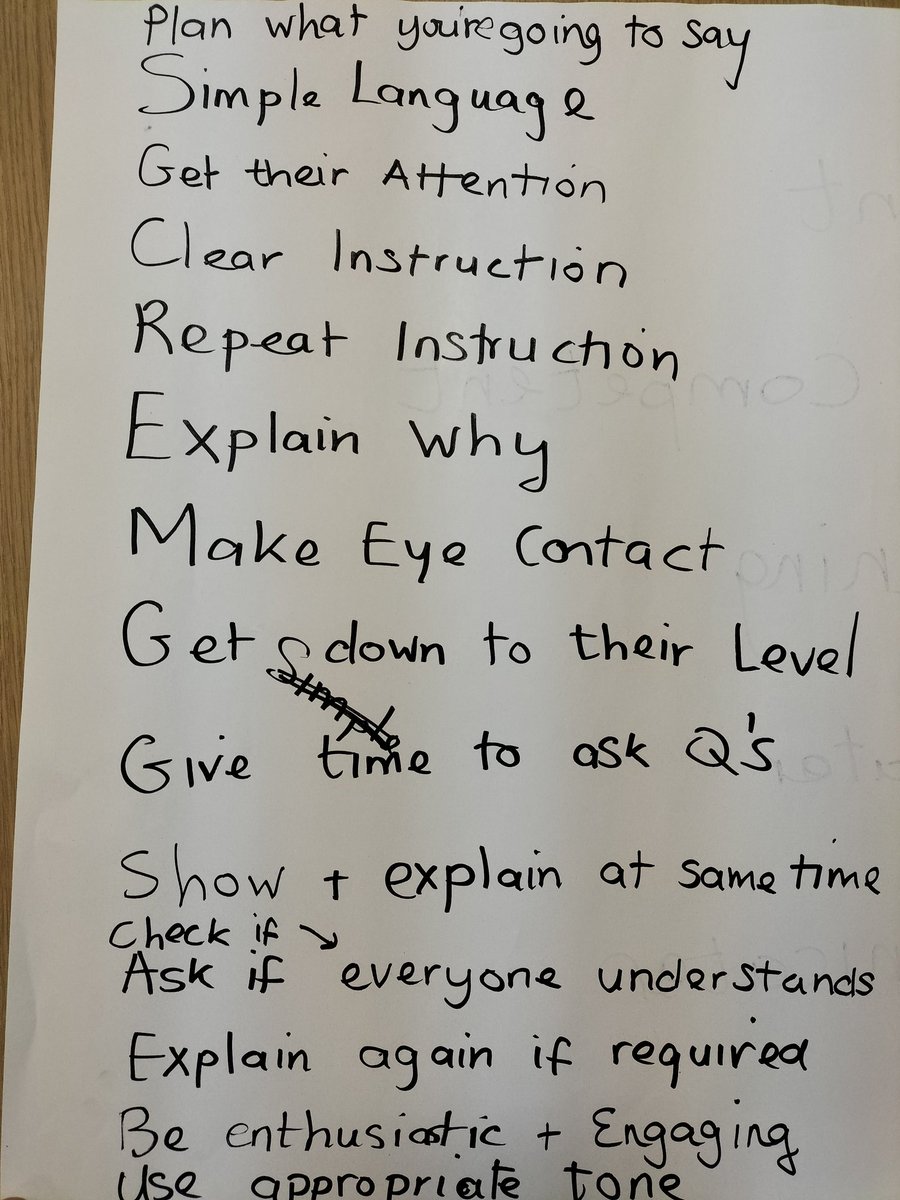 Plan what you're going to say
Simple Language
Get their Attention
Clear Instruction
Repeat Instruction
Explain why
Make Eye Contact
Get down to their Level
Simple
Give time to ask Q's
Show + explain at same time
Check if ↘
Ask if everyone understands
Explain again if required
Be enthusiastic + Engaging
Use appropriate tone